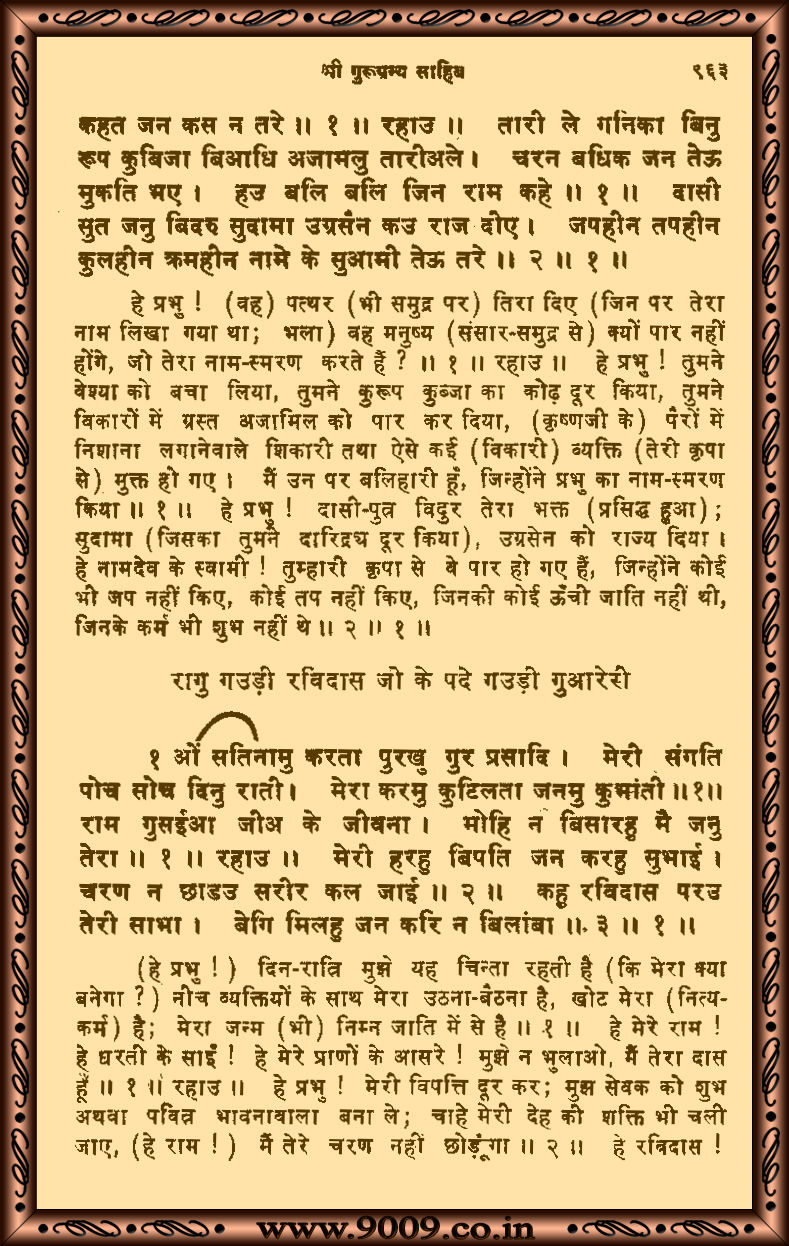 श्री गुरूग्रन्थ साहिब ९६३
कहत जन कस न तरे ।। १ ।। रहाउ ।। तारी ले गनिका बिनु
रूप कुबिजा बिआधि अजामलु तारीअले । चरन बधिक जन तेऊ
मुकति भए । हउ बलि बलि जिन राम कहे ।। १ ।। दासी
सुत जनु बिदरु सुदामा उग्रसैन कउ राज दीए । जपहीन तपहीन
कुलहीन क्रमहीन नामे के सुआमी तेऊ तरे ।। २ ।। १ ।।
हे प्रभु ! (वह) पत्थर (भी समुद्र पर) तिरा दिए (जिन पर तेरा
नाम लिखा गया था; भला) वह मनुष्य (संसार-समुद्र से) क्यों पार नहीं
होंगे, जो तेरा नाम-स्मरण करते हैं ? ।। १ ।। रहाउ ।। हे प्रभु ! तुमने
वेश्या को बचा लिया, तुमने कुरूप कुब्जा का कोढ़ दूर किया, तुमने
विकारों में ग्रस्त अजामिल को पार कर दिया, (कृष्णजी के) पैरों में
निशाना लगानेवाले शिकारी तथा ऐसे कई (विकारी) व्यक्ति (तेरी कृपा
से) मुक्त हो गए । मैं उन पर बलिहारी हूँ, जिन्होंने प्रभु का नाम-स्मरण
किया ।। १ ।। हे प्रभु ! दासी-पुत्र विदुर तेरा भक्त (प्रसिद्ध हुआ) ;
सुदामा (जिसका तुमने दारिद्रय दूर किया), उग्रसेन को राज्य दिया ।
हे नामदेव के स्वामी ! तुम्हारी कृपा से वे पार हो गए हैं, जिन्होंने कोई
भी जप नहीं किए, कोई तप नहीं किए, जिनकी कोई ऊँची जाति नहीं थी,
जिनके कर्म भी शुभ नहीं थे ।। २ ।। १ ।।
रागु गउड़ी रविदास जी के पदे गउड़ी गुआरेरी
१ ओं सतिनामु करता पुरखु गुर प्रसादि । मेरी संगति
पोच सोच दिनु राती । मेरा करमु कुटिलता जनमु कुभांती ।।१।।
राम गुसईआ जीअ के जीवना । मोहि न बिसारहु मै जनु
तेरा ।। १ ।। रहाउ ।। मेरी हरहु बिपति जन करहु सुभाई ।
चरण न छाडउ सरीर कल जाई ।। २ ।। कहु रविदास परउ
तेरी साभा । बेगि मिलहु जन करि न बिलांबा ।। ३ ।। १ ।।
(हे प्रभु !) दिन-रात्रि मुझे यह चिन्ता रहती है (कि मेरा क्या
बनेगा ?) नीच व्यक्तियों के साथ मेरा उठना-बैठना है, खोट मेरा (नित्य-
कर्म) है; मेरा जन्म (भी) निम्न जाति में से है ।। १ ।। हे मेरे राम !
हे धरती के साईं ! हे मेरे प्राणों के आसरे ! मुझे न भुलाओ, मैं तेरा दास
हूँ ।। १ ।। रहाउ ।। हे प्रभु ! मेरी विपत्ति दूर कर; मुझ सेवक को शुभ
अथवा पवित्र भावनावाला बना ले; चाहे मेरी देह की शक्ति भी चली
जाए, (हे राम !) मैं तेरे चरण नहीं छोड़ूंगा ।। २ ।। हे रविदास !
www.9009.co.in